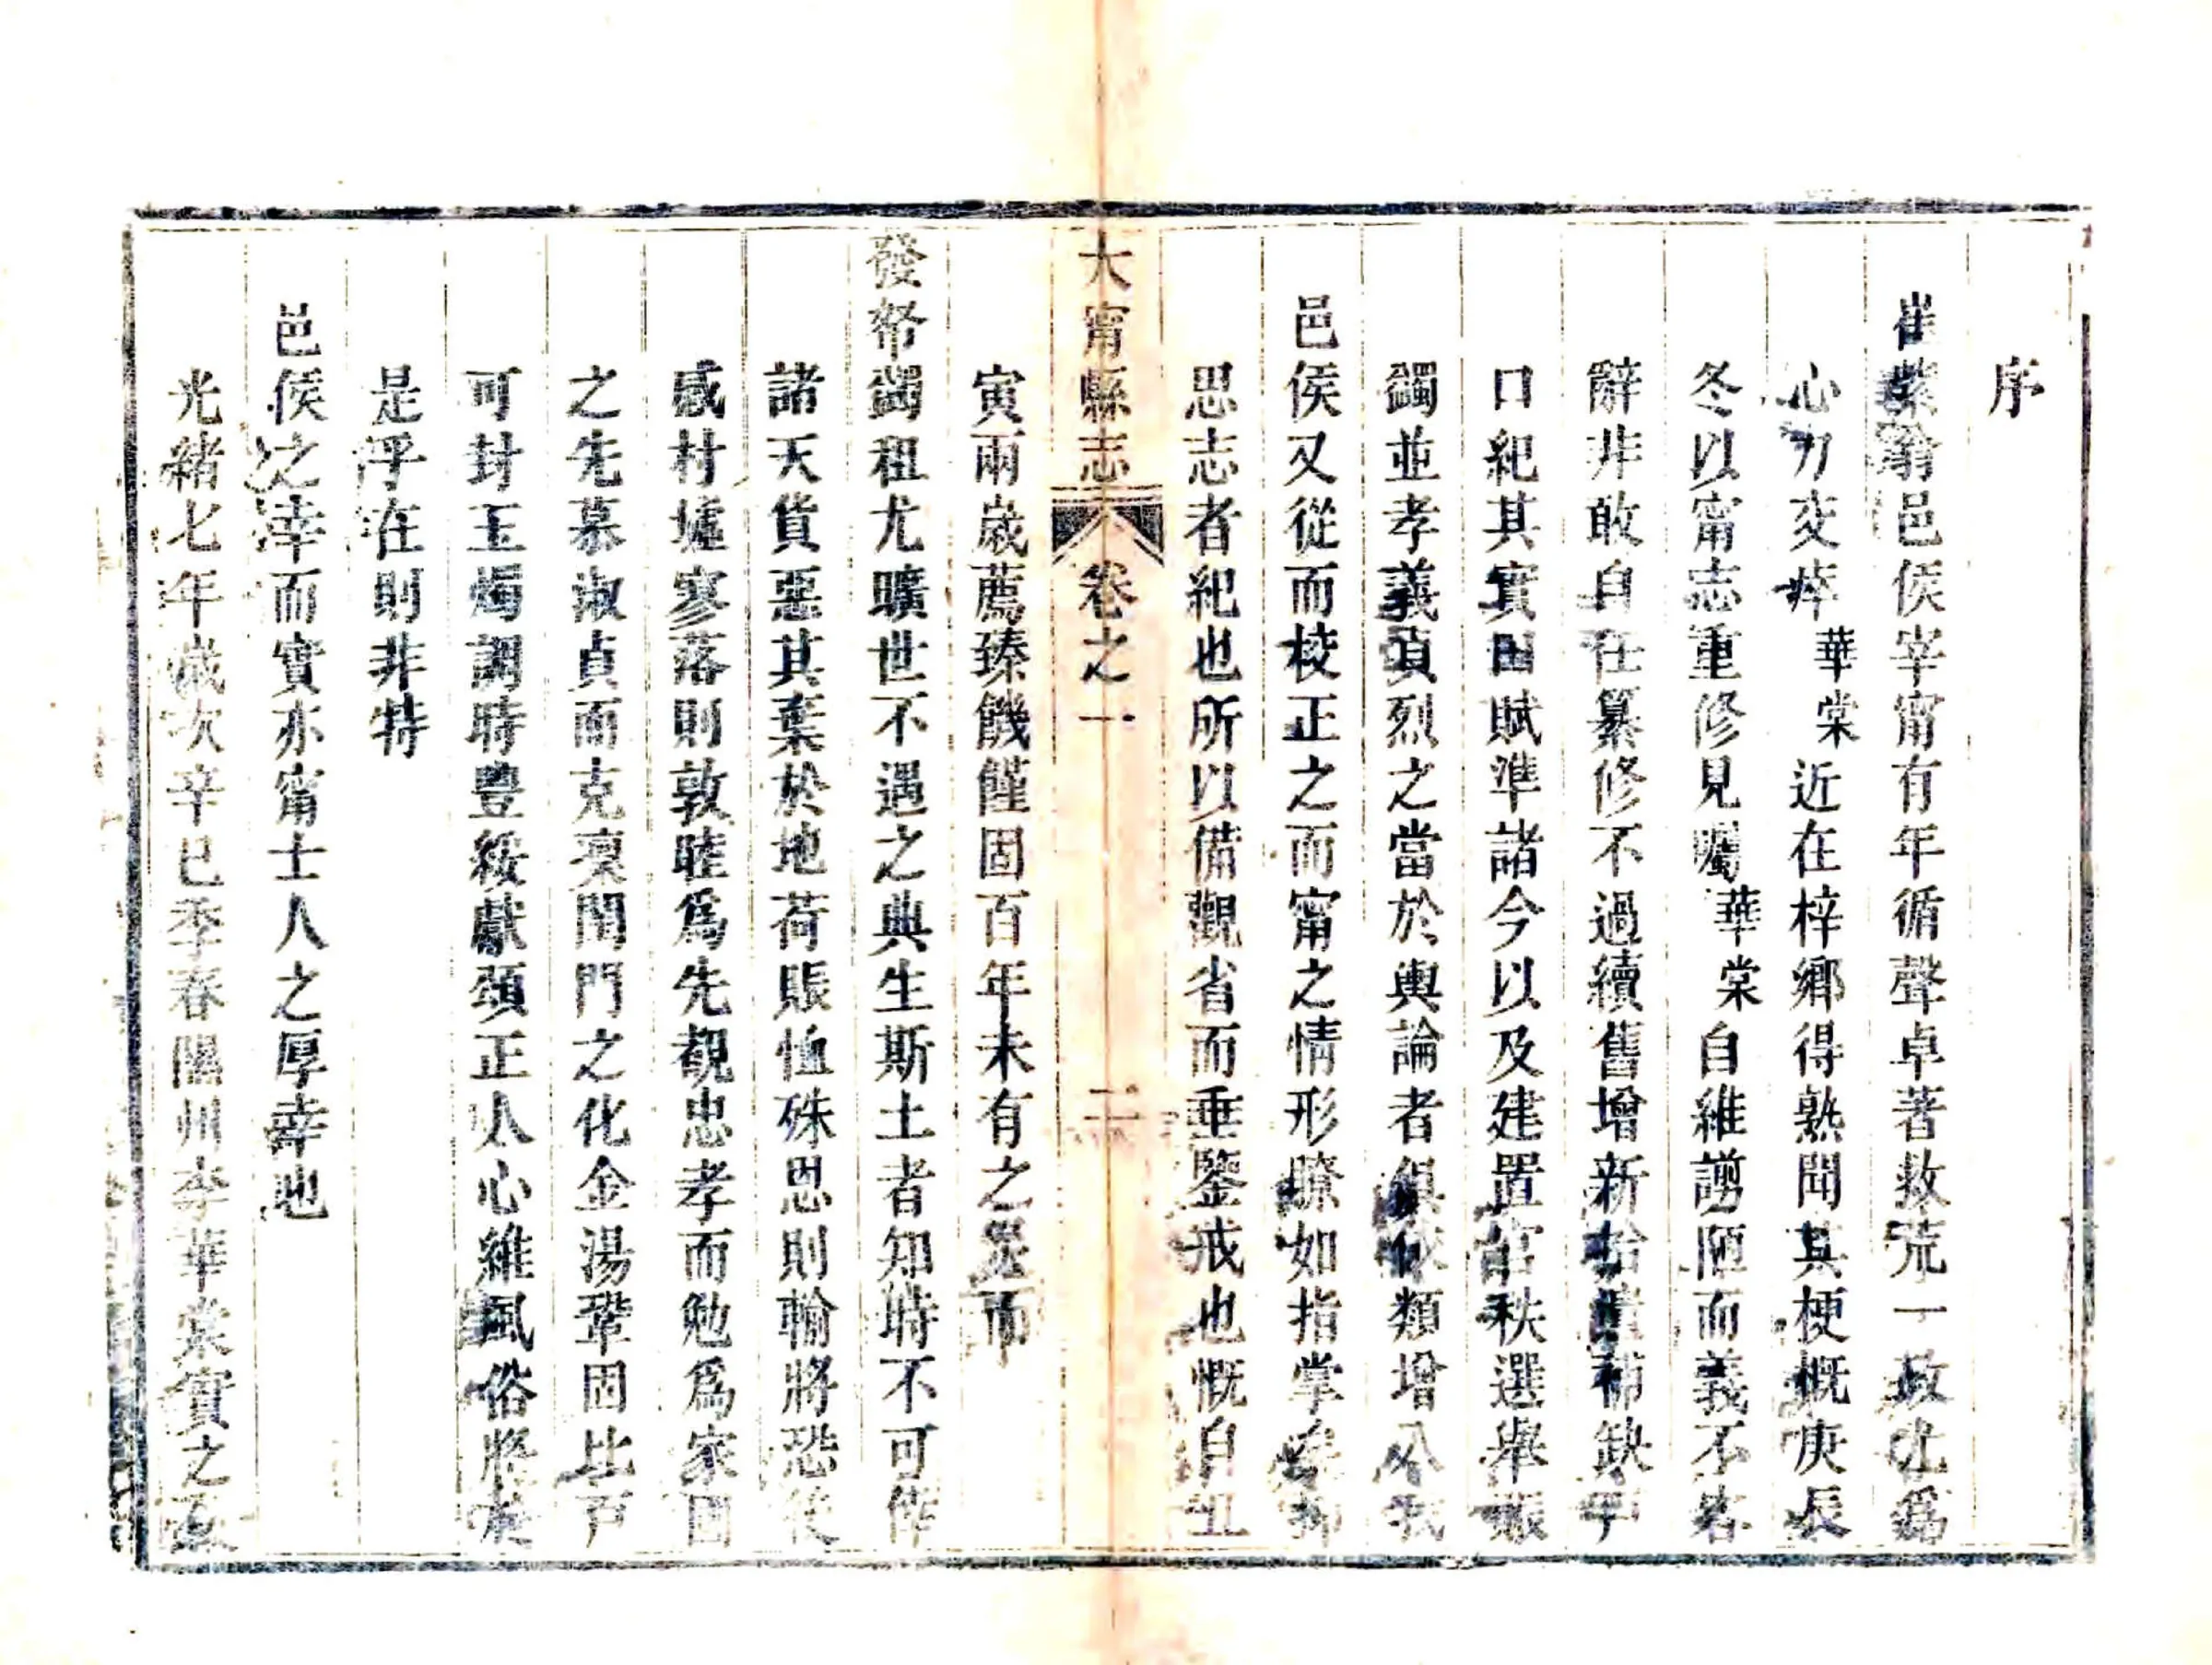 序
崔紫翁邑侯宰甯有年循聲卓著救荒一政尤爲
心力交瘁華棠近在梓鄉得熟聞其梗概庚辰
冬以甯志重修見囑華棠自維譾陋而義不容
辭非敢自任纂修不過續舊增新拾遺補缺乎
口紀其實田賦準諸今以及建置官秩選舉賑
蠲並孝義貞烈之當於輿論者俱依類增入我
邑侯又從而校正之而甯之情形瞭如指掌矣抑
思志者紀也所以備觀省而垂鑒戒也慨自丑
大甯縣志 卷之一 二
寅兩歲薦臻饑饉固百年未有之災而
發帑蠲租尤曠世不遇之典生斯土者知時不可恃
諸天貨惡其棄於地荷賬恤殊恩則輸將恐後
感村墟寥落則敦睦爲先覩忠孝而勉爲家國
之先慕淑貞而克凜閨門之化金湯鞏固比戶
可封玉燭調時豐綏獻頌正人心維風俗將於
是乎在則非特
邑侯之幸而實亦甯士人之厚幸也
光緒七年歲次辛巳季春隰州李華棠實之